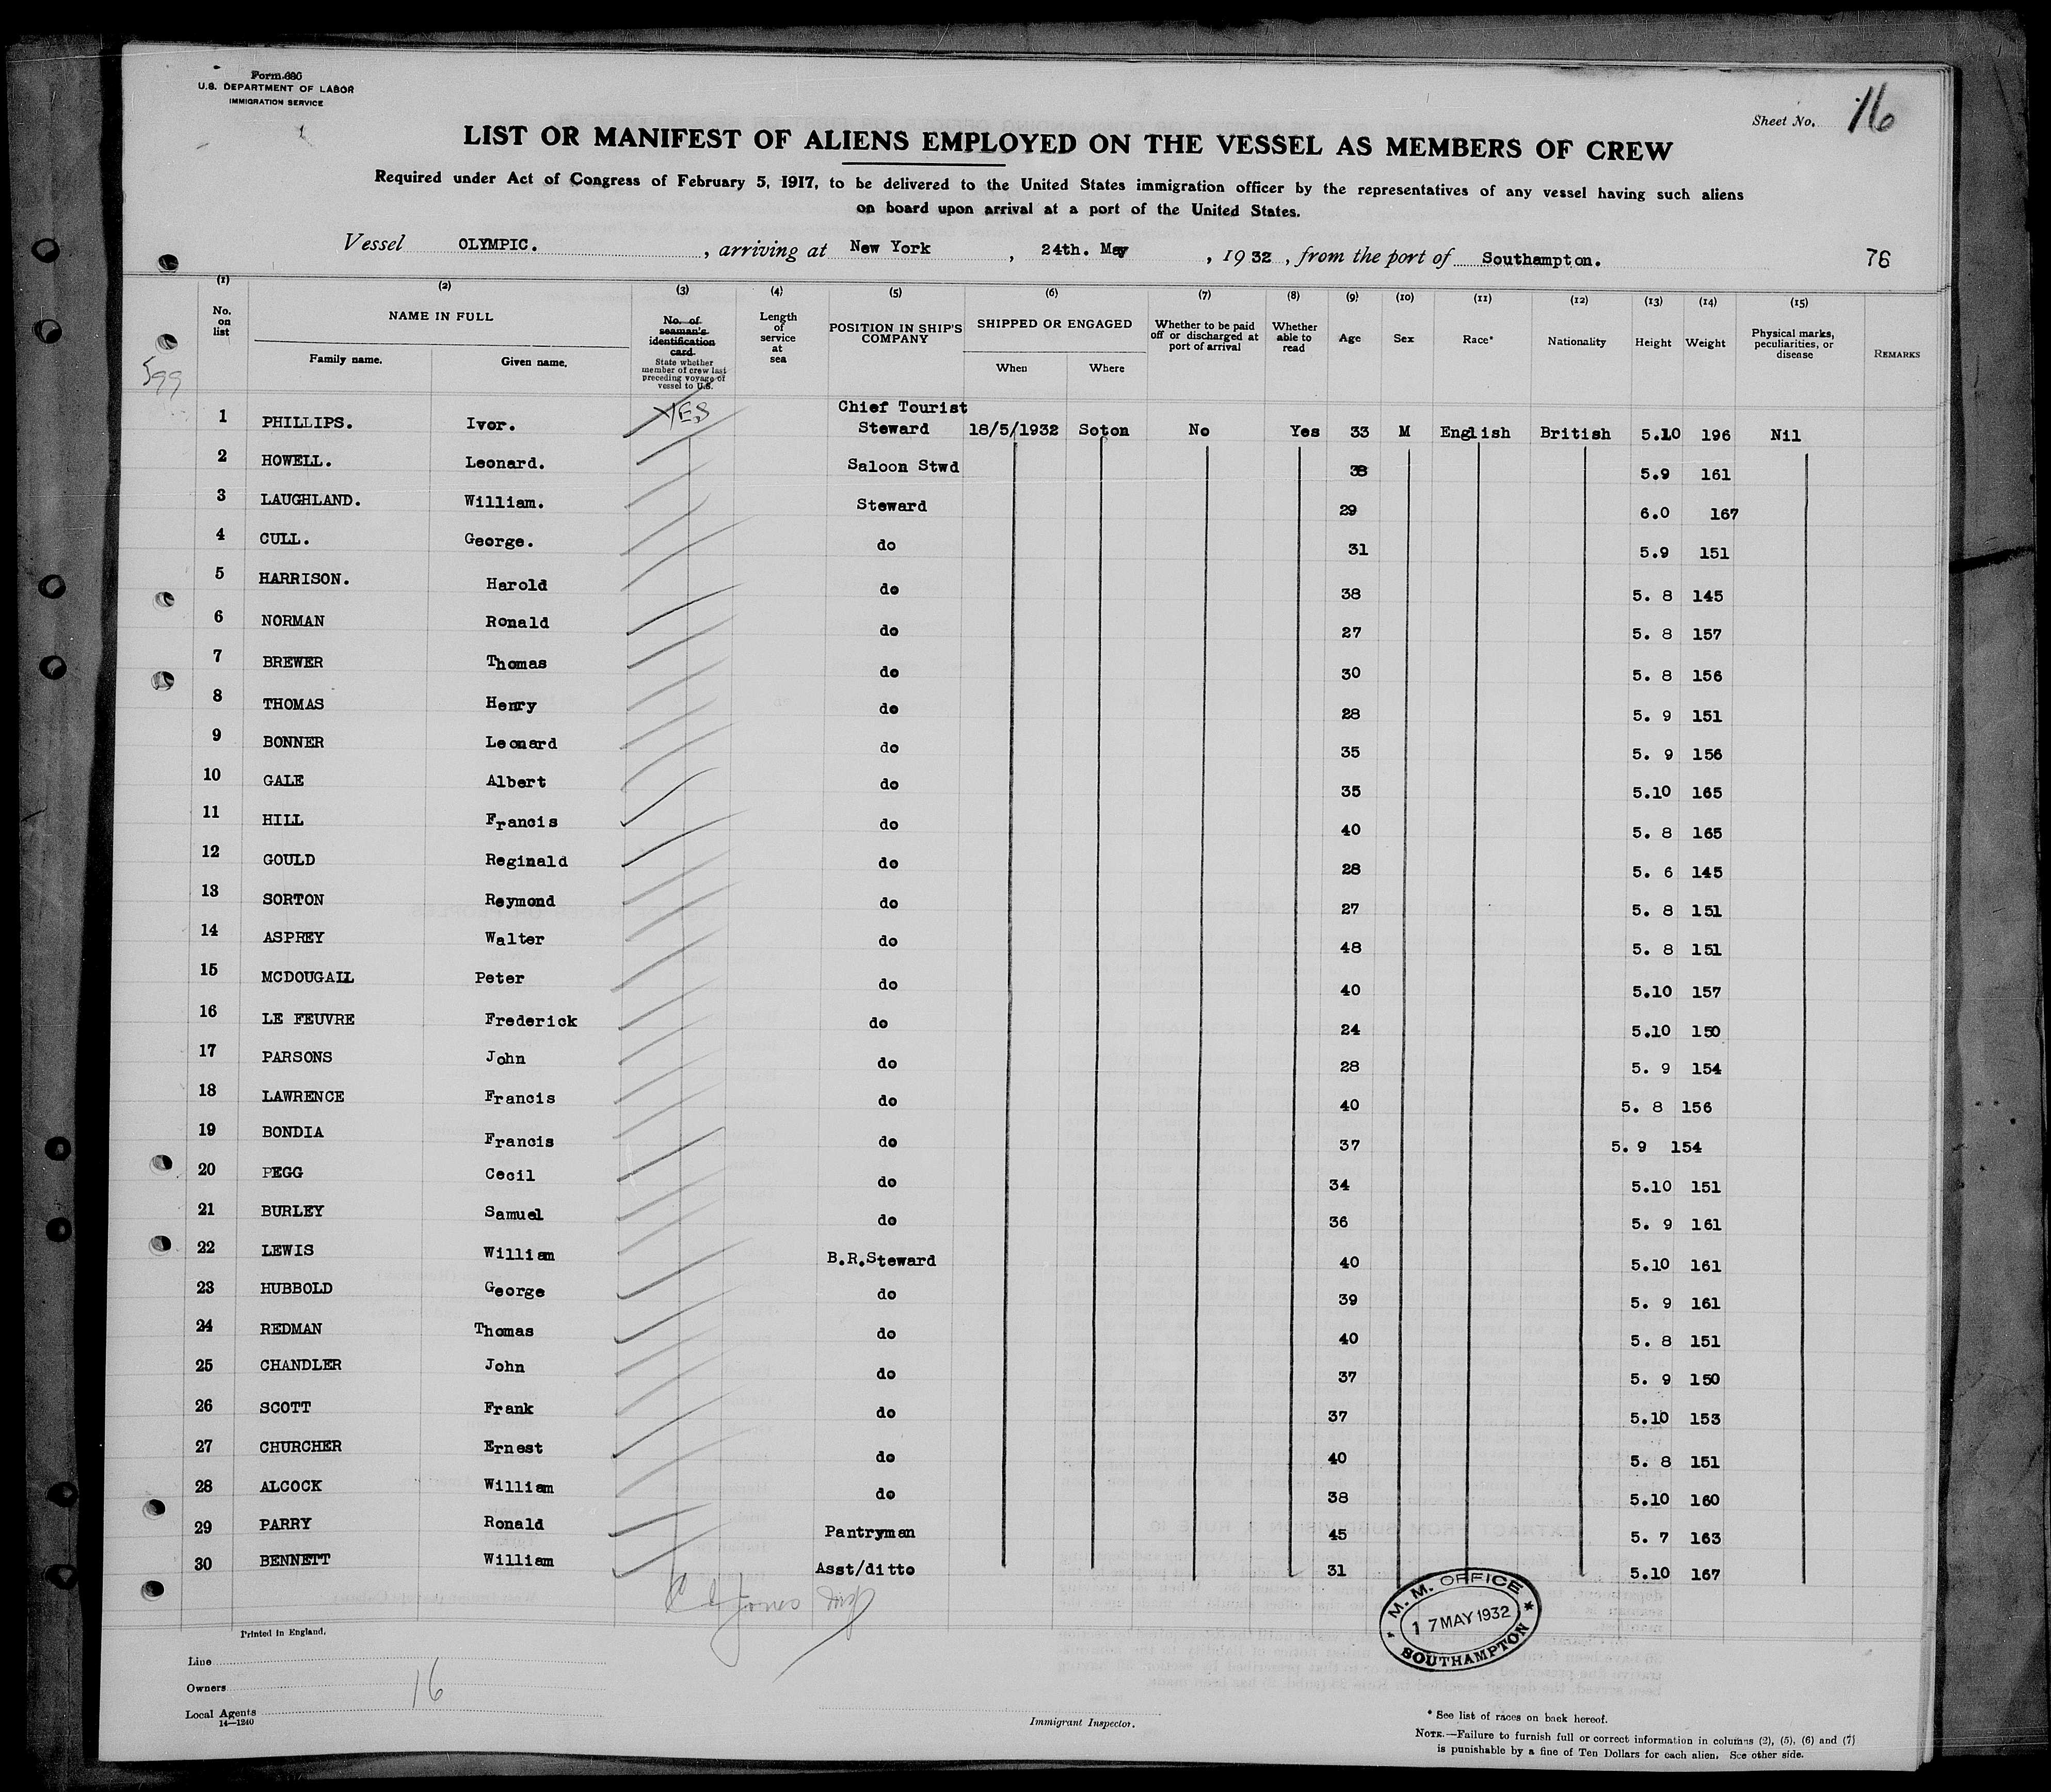 Form 686
U.S. DEPARTMENT OF LABOR
IMMIGRATION SERVICE
Sheet No. 16
LIST OR MANIFEST OF ALIENS EMPLOYED ON THE VESSEL AS MEMBERS OF CREW
Required under Act of Congress of February 5, 1917, to be delivered to the United States immigration officer by the representatives of any vessel having such aliens
on board upon arrival at a port of the United States.
Vessel OLYMPIC. , arriving at New York , 24th. May , 1932 , from the port of Southampton. 76
(1) (2) (3) (4) (5) (6) (7) (8) (9) (10) (11) (12) (13) (14) (15)
No. on list NAME IN FULL Family name. Given name. No. of seaman's identification card. State whether member of crew last preceding voyage of vessel to U.S. Length of service at sea POSITION IN SHIP'S COMPANY SHIPPED OR ENGAGED When Where Whether to be paid off or discharged at port of arrival Whether able to read Age Sex Race* Nationality Height Weight Physical marks, peculiarities, or disease REMARKS
599
1 PHILLIPS. Ivor. YES Chief Tourist Steward 18/5/1932 Soton No Yes 33 M English British 5.10 196 Nil
2 HOWELL. Leonard. Saloon Stwd 38 5.9 161
3 LAUGHLAND. William. Steward 29 6.0 167
4 CULL. George. do 31 5.9 151
5 HARRISON. Harold do 38 5. 8 145
6 NORMAN Ronald do 27 5. 8 157
7 BREWER Thomas do 30 5. 8 156
8 THOMAS Henry do 28 5. 9 151
9 BONNER Leonard do 35 5. 9 156
10 GALE Albert do 35 5.10 165
11 HILL Francis do 40 5. 8 165
12 GOULD Reginald do 28 5. 6 145
13 SORTON Reymond do 27 5. 8 151
14 ASPREY Walter do 48 5. 8 151
15 MCDOUGALL Peter do 40 5.10 157
16 LE FEUVRE Frederick do 24 5.10 150
17 PARSONS John do 28 5. 9 154
18 LAWRENCE Francis do 40 5. 8 156
19 BONDIA Francis do 37 5. 9 154
20 PEGG Cecil do 34 5.10 151
21 BURLEY Samuel do 36 5. 9 161
22 LEWIS William B.R.Steward 40 5.10 161
23 HUBBOLD George do 39 5. 9 161
24 REDMAN Thomas do 40 5. 8 151
25 CHANDLER John do 37 5. 9 150
26 SCOTT Frank do 37 5.10 153
27 CHURCHER Ernest do 40 5. 8 151
28 ALCOCK William do 38 5.10 160
29 PARRY Ronald Pantryman 45 5. 7 163
30 BENNETT William Asst/ditto 31 5.10 167
Jones
M. M. OFFICE
17 MAY 1932
SOUTHAMPTON
Printed in England.
Line
Owners 16
Local Agents
14—1240
Immigrant Inspector.
* See list of races on back hereof.
NOTE.—Failure to furnish full or correct information in columns (2), (5), (6) and (7)
is punishable by a fine of Ten Dollars for each alien. See other side.